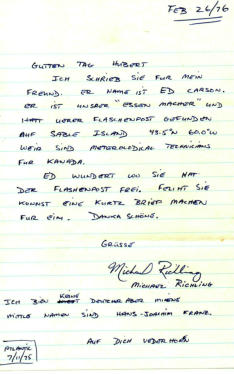 FEB 26/76
GUTTEN TAG HUBERT
ICH SCHRIEB SIE FUR MEIN
FREUND. ER NAME IST ED CARSON.
ER IST UNSRER "ESSEN MACHER" UND
HATT UERER FLASCHENPOST GEFUNDEN
AUF SABLE ISLAND 43.5°N 60.0°W
WEIR SIND METEROLODICAL TECHNICIANS
FUR KANADA.
ED WUNDERT WO SIE HAT
DER FLASHENPOST FREI. SIE
KONNST EINE KURTZ BRIEF MACHEN
FUR EIM. DANKA SCHÖNE.
GRÜSSE
Michael Richling
MICHAEL RICHLING
ICH BIEN KEINE DEUTCHER ABER MIENE
MITTLE NAMEN SIND HANS-JOACHIM FRANZ.
AUF DICH VEDERHOEN
ATLANTIC
7/11/75